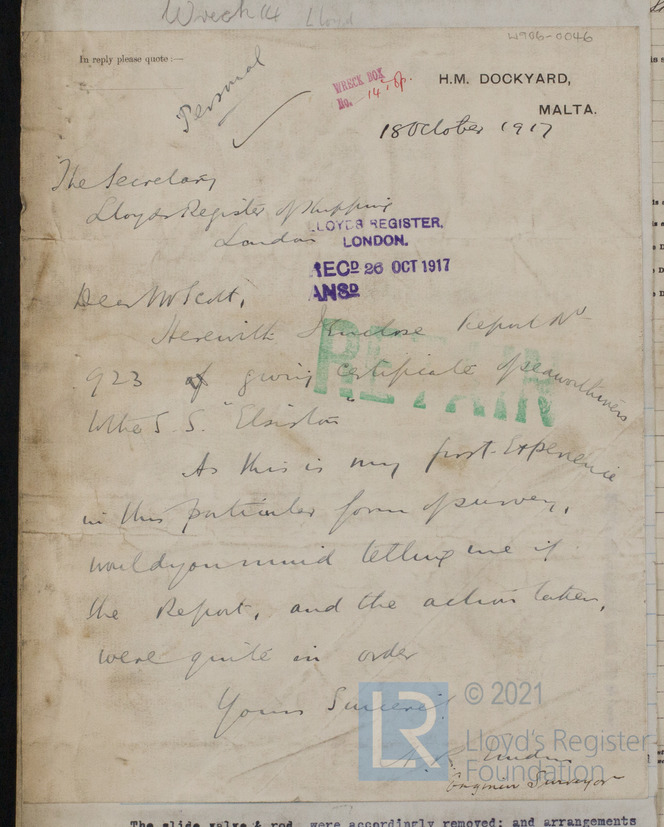 Wreck 14 Lloyd
W906-0046
In reply please quote :—
Personal
WRECK BOX
No. 14
H.M. DOCKYARD,
MALTA.
18 October 1917
The Secretary
Lloyds Register of Shipping
London
LLOYDS REGISTER,
LONDON.
RECD 26 OCT 1917
ANSD
Dear Mr Scott,
Herewith I enclose Report No
RETAIN
923 of giving certificate of seaworthiness
to the S.S. "Elsiston"
As this is my first Experience
in this particular form of survey,
would you mind telling me if
the Report, and the action taken,
were quite in order
Yours Sincerely
Engineer Surveyor
LR
© 2021
Lloyd's Register
Foundation
The slide valve & rod were accordingly removed; and arrangements